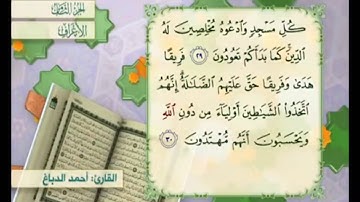 الجزء الثامن
الأعراف
كُلِّ مَسْجِدٍ وَٱدْعُوهُ مُخْلِصِينَ لَهُ
ٱلدِّينَ كَمَا بَدَأَكُمْ تَعُودُونَ ٢٩ فَرِيقًا
هَدَىٰ وَفَرِيقًا حَقَّ عَلَيْهِمُ ٱلضَّلَٰلَةُ إِنَّهُمُ
ٱتَّخَذُوا۟ ٱلشَّيَٰطِينَ أَوْلِيَآءَ مِن دُونِ ٱللَّهِ
وَيَحْسَبُونَ أَنَّهُم مُّهْتَدُونَ ٣٠
القارئ: أحمد الدباغ